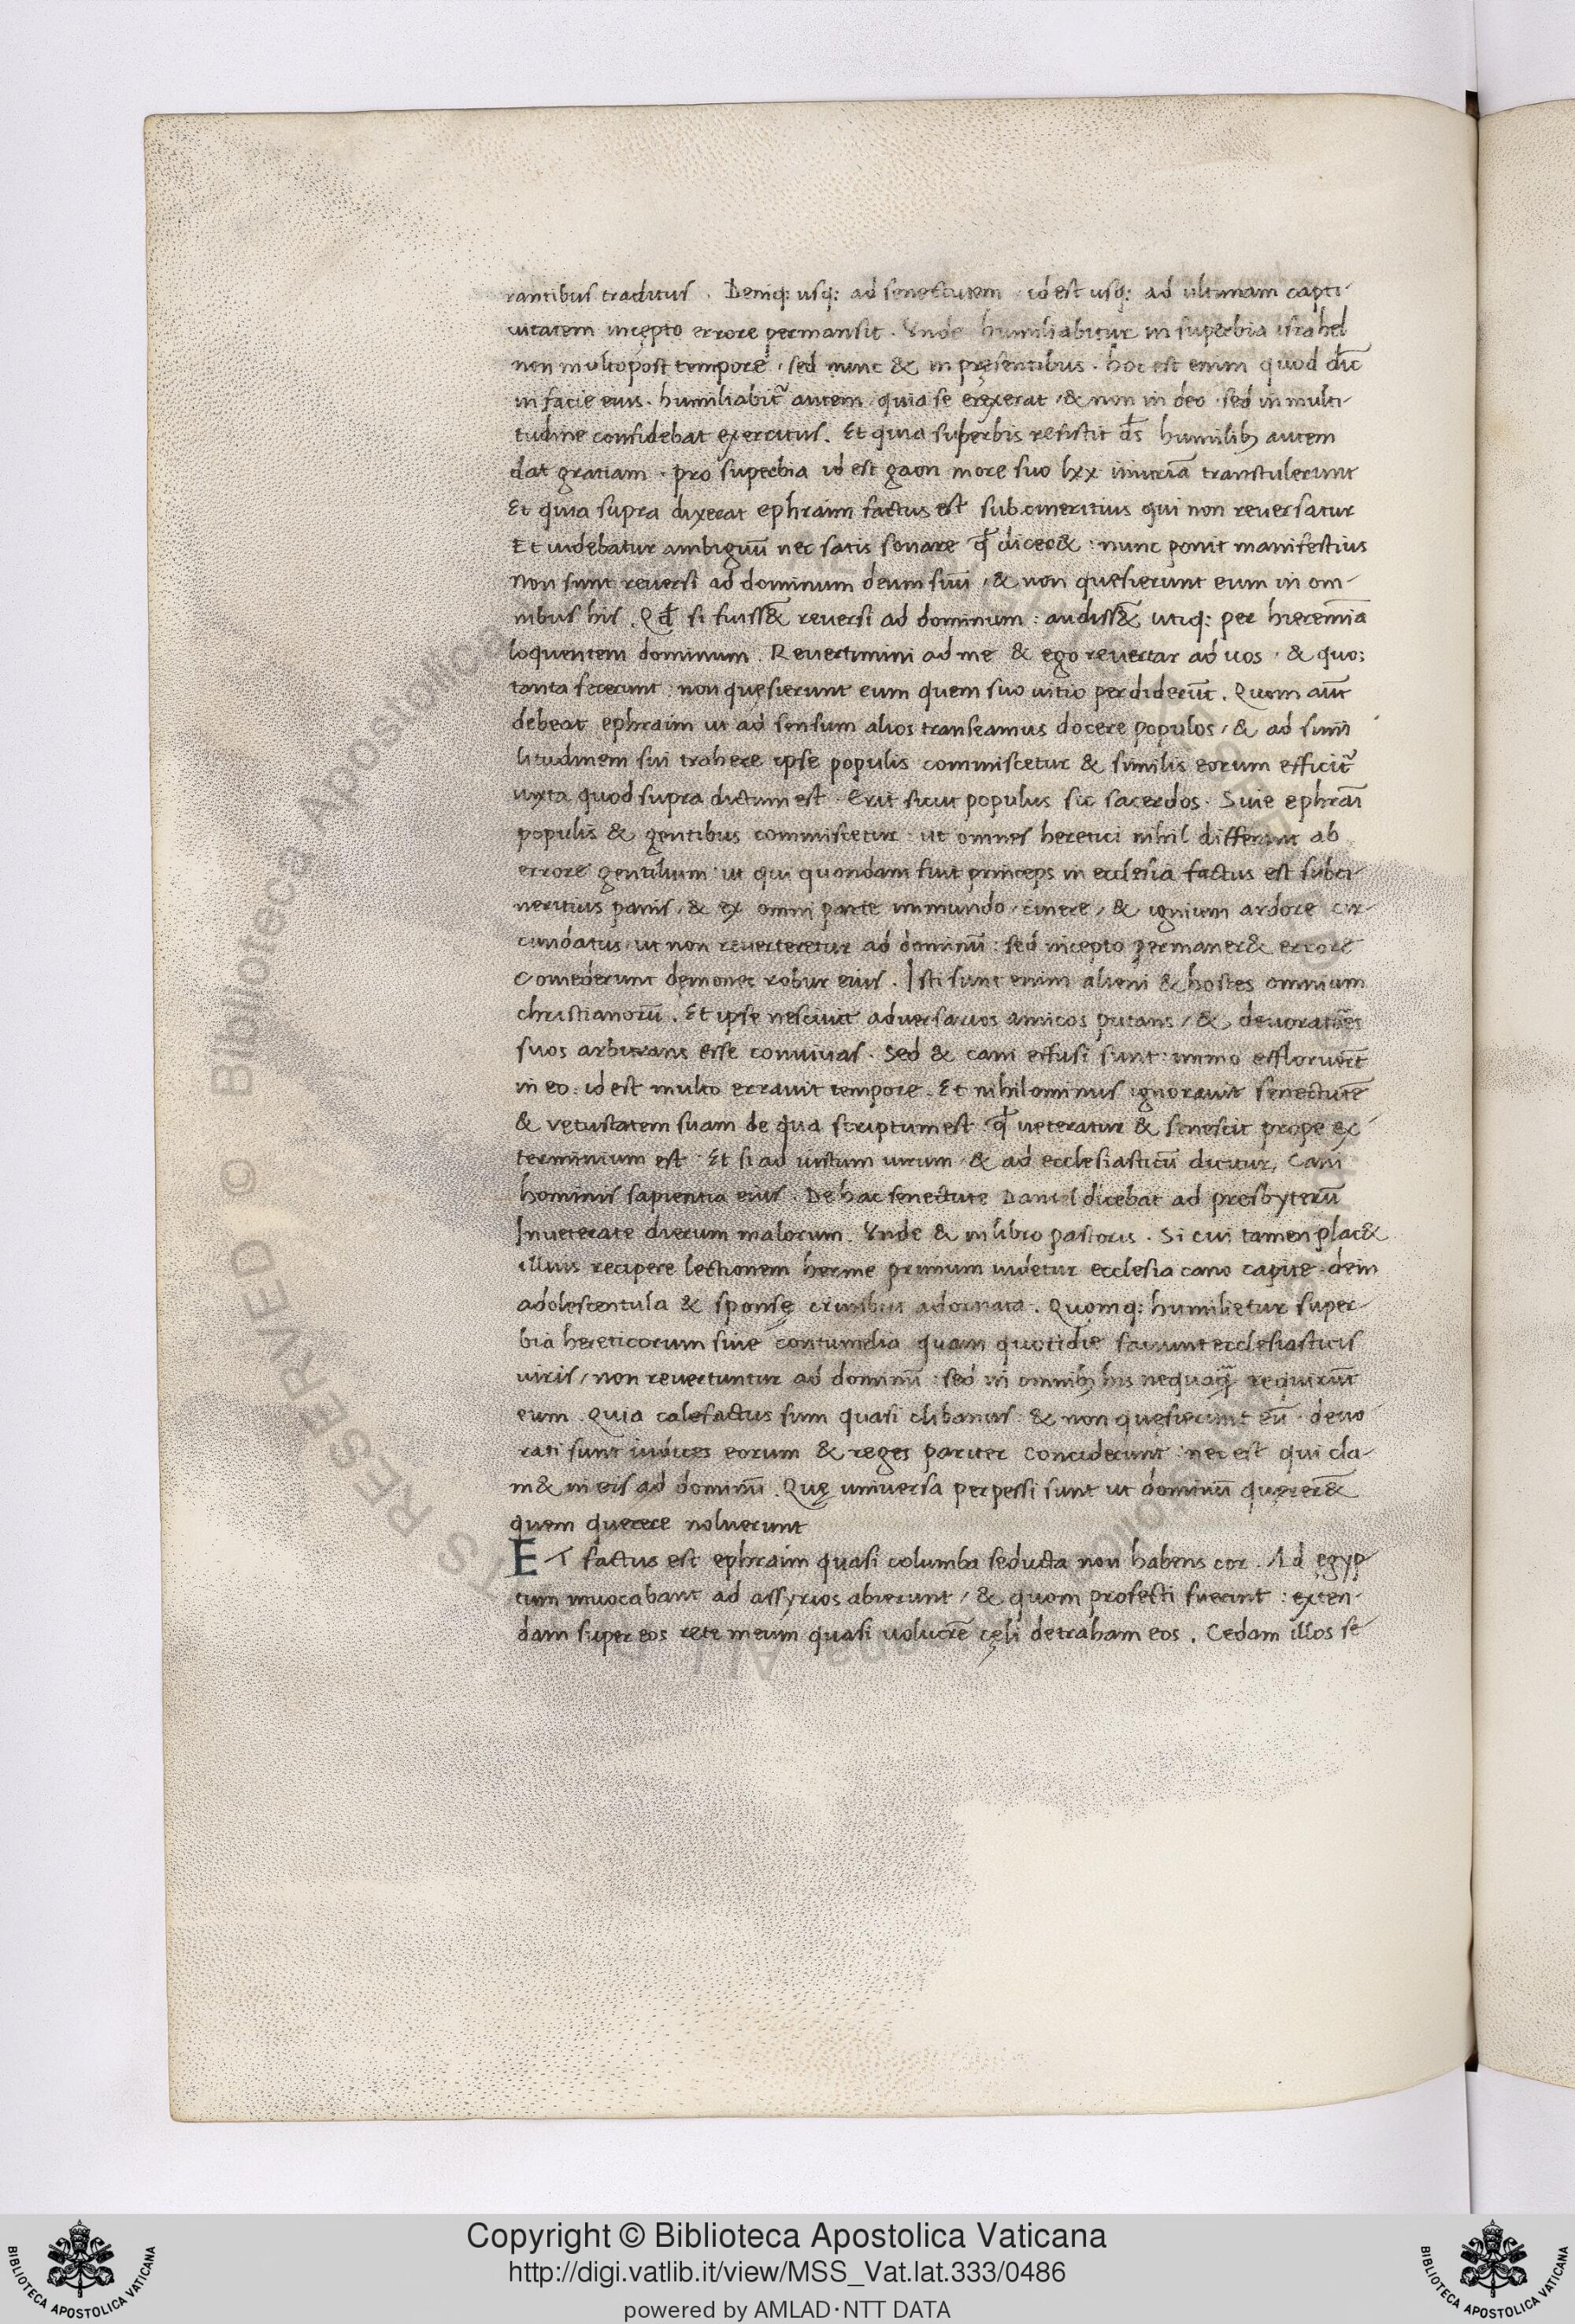 rantibus traditus . Deniq: usq: ad senectutem · id est usq: ad ultimam capti-
uitatem incępto errore permansit . Vnde humiliabitur in superbia israhel
non multo post tempore · sed nunc & in pręsentibus . hoc est enim quod dic̄
in facie eius . humiliabit᷑ autem · quia se erexerat · & non in deo · sed in multi-
tudine confidebat exercitus . Et quia superbis resistit ds̄ humilib; autem
dat gratiam . pro superbia id est gaon more suo lxx iniuriā transtulerunt
Et quia supra dixerat ephraim factus est subcineritius qui non reuersatur
Et uidebatur ambiguū nec satis sonare qđ dicer& : nunc ponit manifestius
Non sunt reuersi ad dominum deum suū · & non quesierunt eum in om-
nibus his . Qđ si fuiss&̄ reuersi ad dominum : audiss&̄ utiq: per hieremiā
loquentem dominum . Reuertimini ad me & ego reuertar ad uos · & quo:
tanta fecerunt : non quęsierunt eum quem suo uitio perdiderūt . Quom aūt
debeat ephraim ut ad sensum alios transeamus docere populos / & ad simi
litudinem sui trahere ipse populis commiscetur & similis eorum efficit᷑
iuxta quod supra dictum est . Erit sicut populus sic sacerdos . Siue ephraī
populis & gentibus commiscetur : ut omnes heretici nihil differant ab
errore gentilium : ut qui quondam fuit princeps in ecclesia factus est subci-
neritius panis · & ex omni parte immundo · cinere / & ignium ardore cir-
cundatus · ut non reuerteretur ad dominū : sed incepto permaner& errore
Comederunt dęmones robur eius . Isti sunt enim alieni & hostes omnium
christianorū . Et ipse nesciuit aduersarios amicos putans / & deuorantes
suos arbitrans esse conuiuas . Sed & cani effusi sunt : immo effloruert̄
in eo : id est multo errauit tempore . Et nihilominus ignorauit senectutē
& vetustatem suam de qua scriptum est · qđ ueteratur & senescit prope ex
terminium est · Et si ad iustum uirum · & ad ecclesiasticū dicitur , Cani
hominis sapientia eius . De hac senectute Daniel dicebat ad presbyterū
Inueterate dierum malorum . Vnde & in libro pastoris . Si cui tamen plac&
illius recipere lectionem herme primum uidetur ecclesia cano capite · dein
adolescentula & sponsę crinibus adornata . Quomq: humilietur super-
bia hereticorum siue contumelia quam quotidie faciunt ecclesiasticis
uiris / non reuertuntur ad dominū : sed in omnib; his nequaq̄ requirūt
eum . Quia calefactus sum quasi clibanus & non quęsierunt eū · deuo
rati sunt iudices eorum & reges pariter conciderunt : nec est qui cla-
m& in eis ad dominū . Quę universa perpessi sunt ut dominū querer&̄
quem querere noluerunt
ET factus est ephraim quasi columba seducta non habens cor . Ad ęgyp
tum inuocabant ad assyrios abierunt / & quom profecti fuerint : exten-
dam super eos rete meum quasi uolucrē cęli detraham eos . Cedam illos se
Copyright © Biblioteca Apostolica Vaticana
http://digi.vatlib.it/view/MSS_Vat.lat.333/0486
powered by AMLAD·NTT DATA
BIBLIOTECA APOSTOLICA VATICANA
BIBLIOTECA APOSTOLICA VATICANA